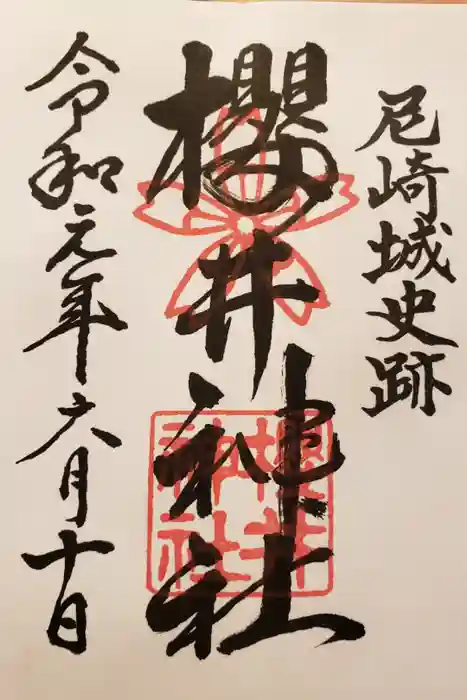 尼崎城史跡
櫻井神社
櫻井
神社
令和元年六月十日